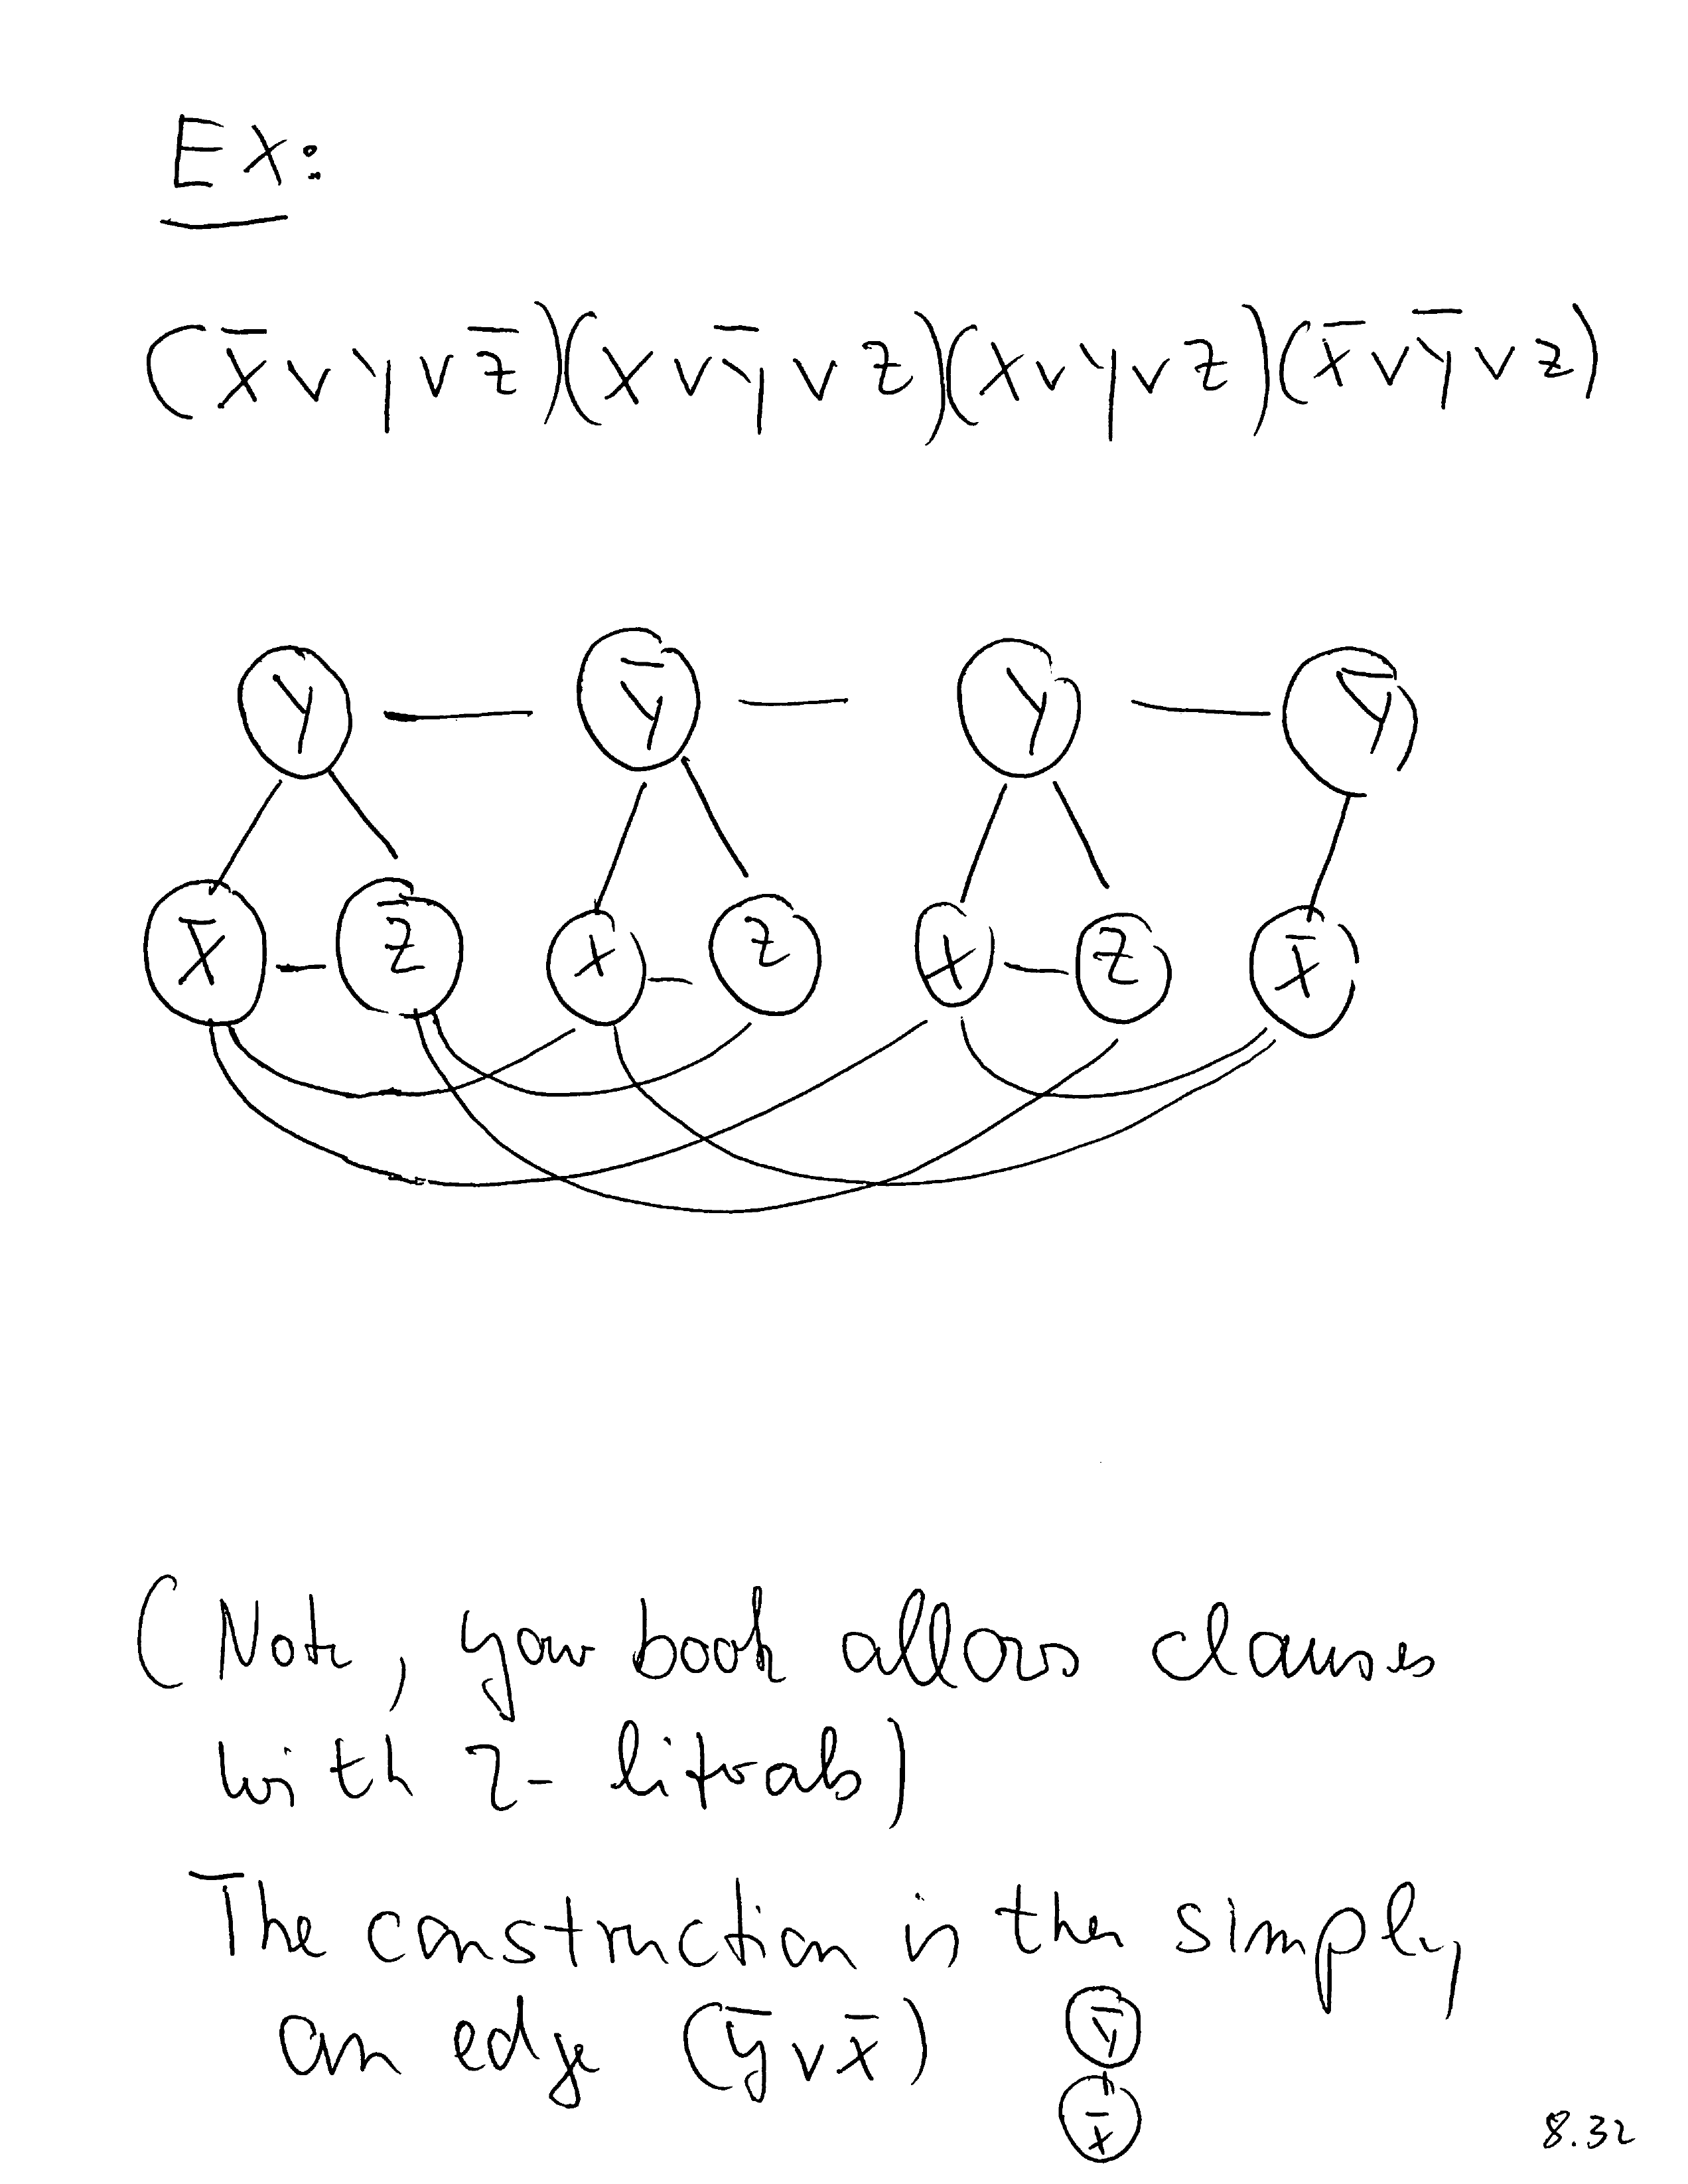 Ex:
(x̄ ∨ y ∨ z̄)(x ∨ ȳ ∨ z)(x ∨ y ∨ z)(x̄ ∨ ȳ ∨ z)
y ȳ y ȳ
x̄ z̄ x z x z x̄
(Note, your book allows clauses
with 2-literals)
The construction is then simply
an edge (ȳ ∨ x̄) ȳ
x̄
8.32